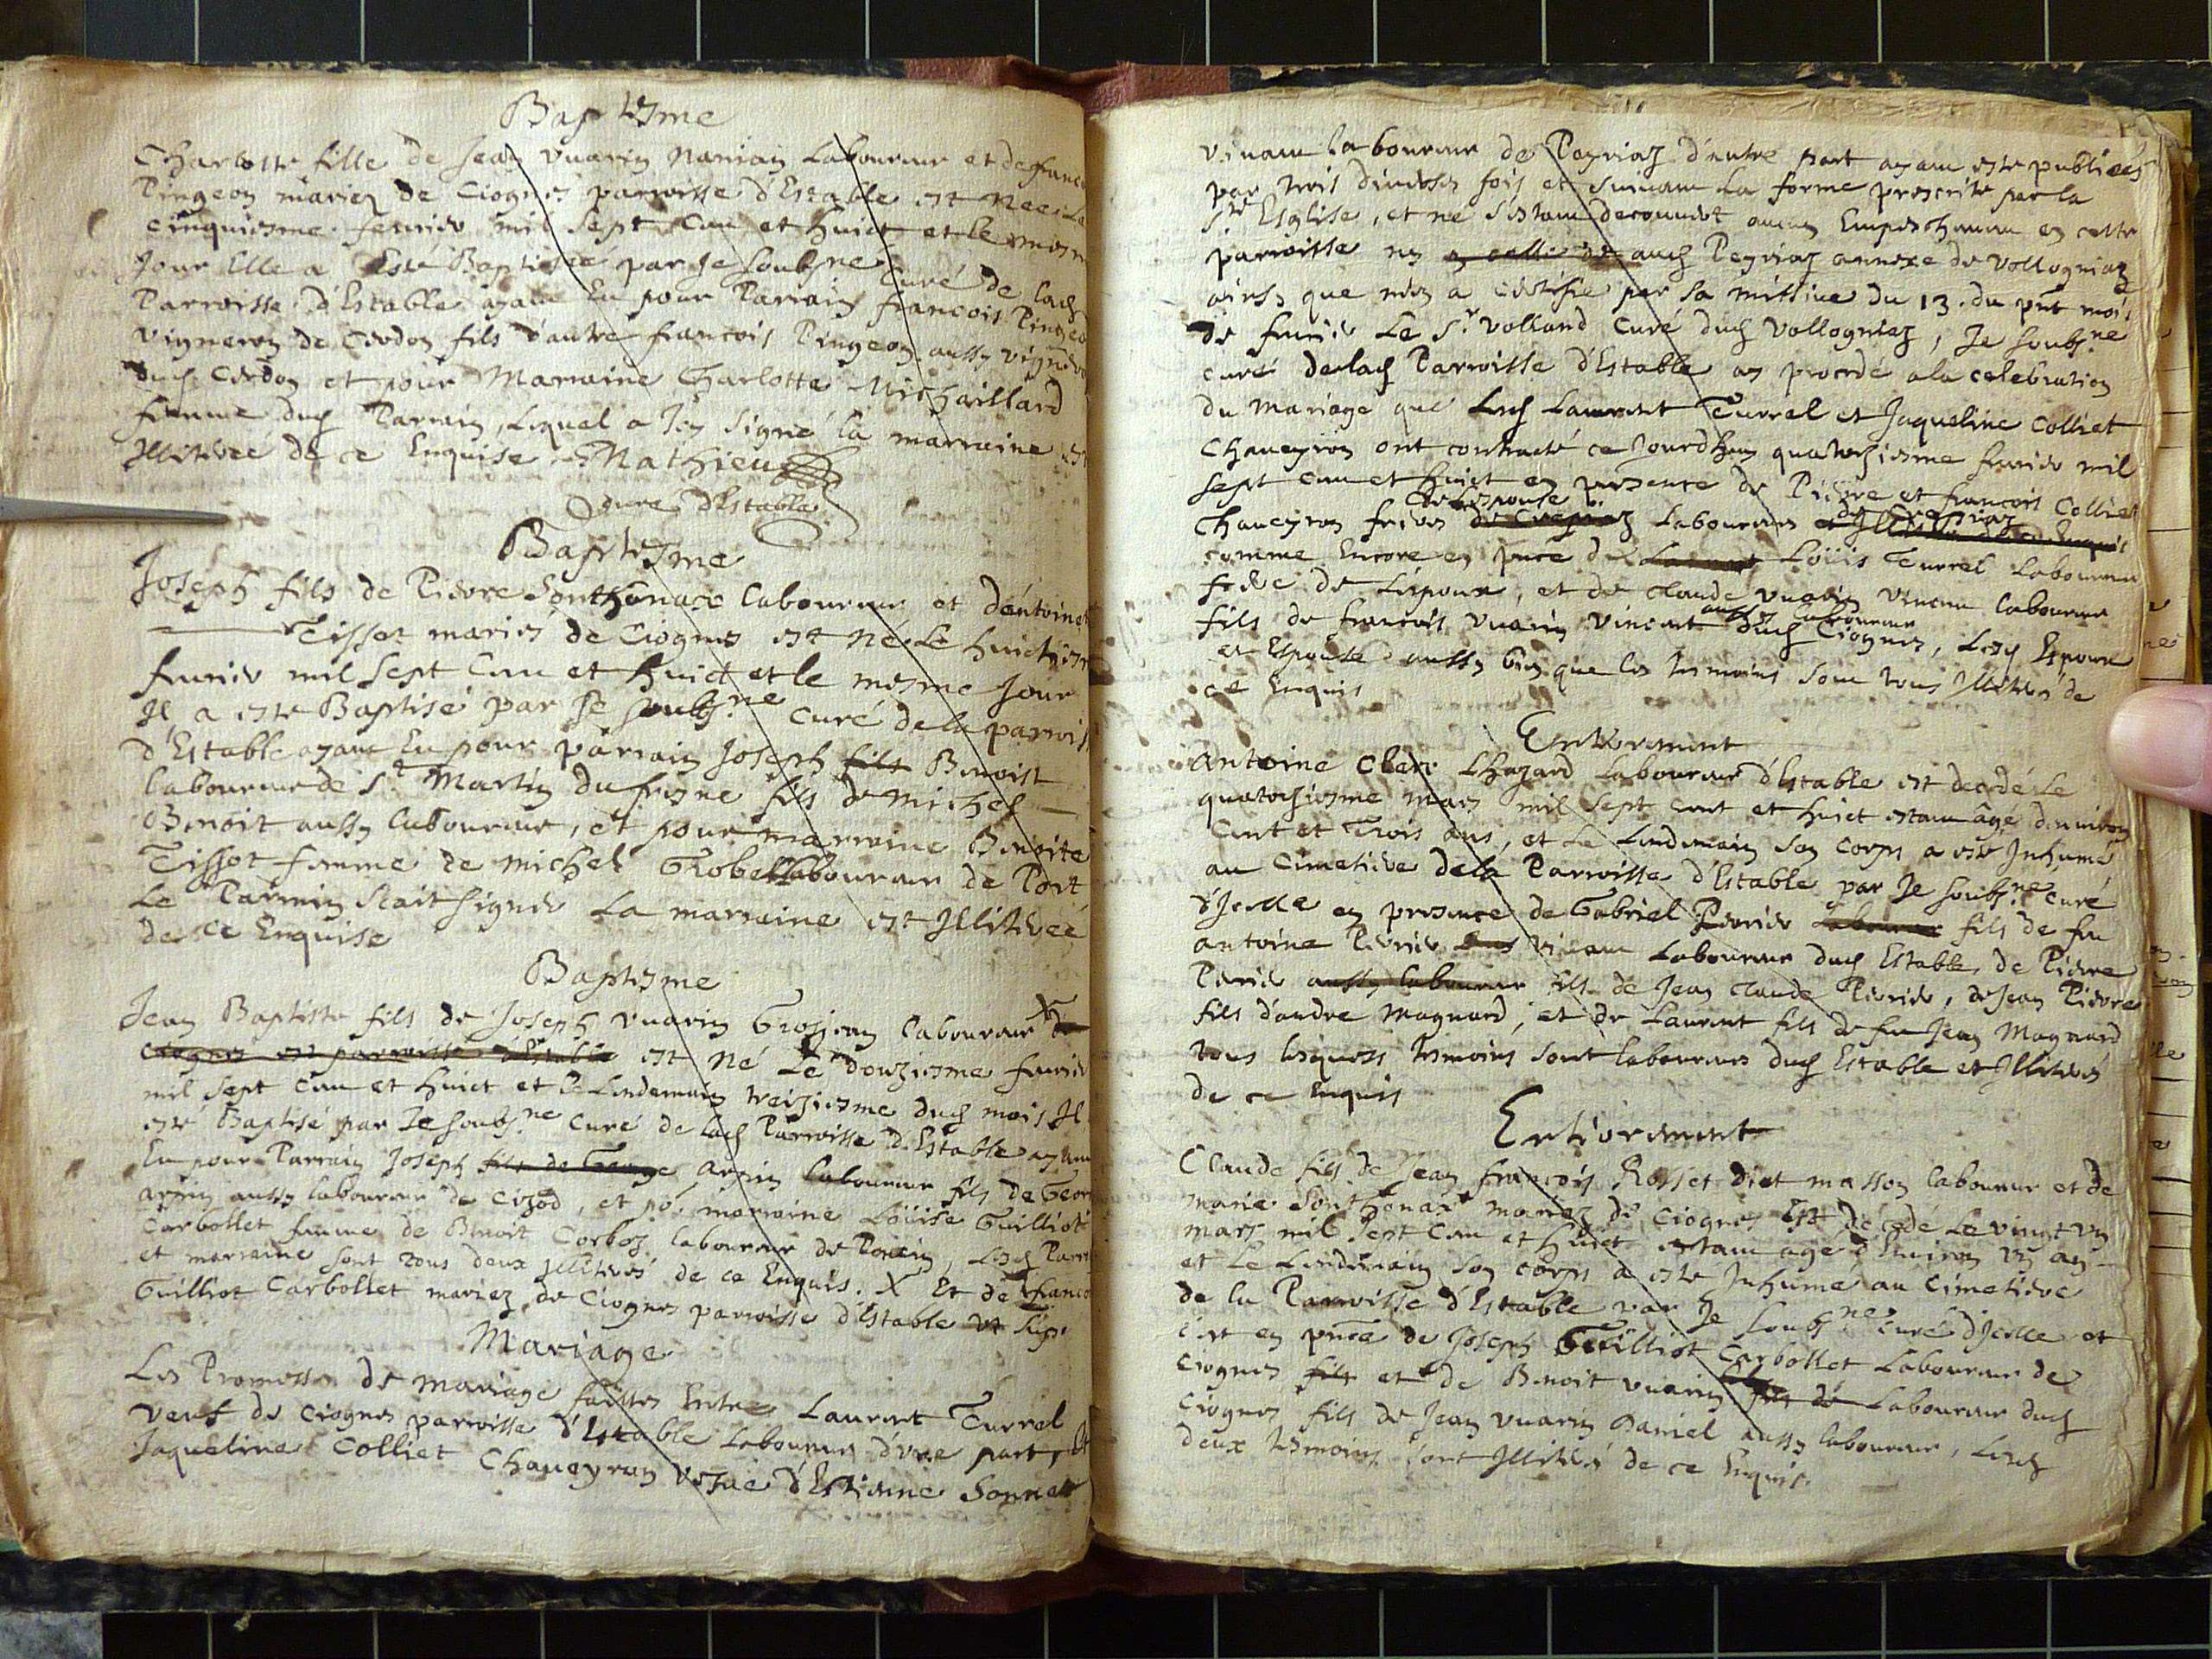 Baptesme
Charlotte fille de Jean Vuarin Naniain Laboureur et de franc
Pingeon mariez de Ciognes parroisse d'Estable est Neé Le
cinquiesme feurier mil sept Cent et huict et le mesm
Jour Elle a Esté Baptiseé par Je soubsne Curé de lad
Parroisse d'Estable ayant Eu pour Parrain francois Pingeo
vigneron de Cerdon fils d'autre francois Pingeon aussy vigner
dud Cerdon et pour Marraine Charlotte Michaillard
femme dud Parrain, Lequel a Icy signé la marraine est
Illitereé de ce Enquise Mathieu
Cure d'Estable
Baptesme
Joseph fils de Pierre Sonthonax laboureur et d'Antoinet
Tissot mariés de Ciognes est né Le huictiesm
feurier mil sept Cent et huict et le mesme Jour
Il a esté Baptisé par Je soubsne Curé de la parrois
d'Estable ayant Eu pour parrain Joseph fils Benoist
laboureur de St Martin du fresne fils de Michel
Benoit aussy laboureur, et pour marraine Benoite
Tissot femme de Michel Grobel laboureur de Port
Le Parrain scait signer La marraine est Illitereé
de ce Enquise
Baptesme
Jean Baptiste fils de Joseph Vuarin Grosjean laboureur X de
Ciognes est parroisse d'Estable est Né Le douziesme feurier
mil sept Cent et huict et le Lendemain treiziesme dud mois Il
esté Baptisé par Je soubsne Curé de lad Parroisse d'Estable ayant
Eu pour Parrain Joseph fils de George arpin laboureur fils de Geor
arpin aussy laboureur de Cizod, et por marraine Loüise Guilliot
Carbollet femme de Benoit Corboz laboureur de, Lesd Parr
et marraine sont tous deux Illiterés de ce Enquis. X Et de franco
Guilliot Carbollet mariez de Ciognes parroisse d'Estable vt sup.
Mariage
Les Promesses de Mariage faittes Entre Laurent Turrel
veuf de Ciognes parroisse d'Estable Laboureur d'vne part, et
Jaqueline Colliet Chaueyron vefue d'Estienne Sonnet
vivant laboureur de Peyriaz d'autre part ayant esté publieés
par trois diuerses fois et suiuant la forme prescrite par la
Ste Esglise, et ne s'estant decouuert aucun Empeschement en cette
parroisse ny a celle de aud Peyriaz annexe de Vollogniaz
ainsy que men a certifié par sa missiue du 13. du pnt mois
de feurier Le Sr Volland Curé dud Vollogniaz, Je soubsne
curé delad Parroisse d'Estable ay procedé a la celebration
du Mariage que Lesd Laurent Turrel et Jaqueline Colliet
Chaueyron ont contracté ce Jourd'huy quatorziesme feurier mil
sept cent et huict en presence de Pierre et francois Colliet
de L'espouse dud Crepiaz
Chaueyron freres de Crepiaz Laboureurs et Illiterés de ce Enquis
comme Encore en pnce de Laurent Loüis Turrel Laboureur
frere de L'epoux, et de Claude Vuarin Vincent laboureur
aussy laboureur
fils de francois Vuarin Vincent dud Ciognes, Lesd Espoux
et Espouse aussy bien que les tesmoins sont tous Illiterés de
ce Enquis
Enterrement
Antoine Clerc Lhazard Laboureur d'Estable est decedé Le
quatorziesme Mars mil sept cent et huict estant âgé d'enuiron
Cent et Trois ans, et Le Lendemain son Corps a esté Inhumé
au Cimetiere dela Parroisse d'Estable par Je soubsne Curé
d'Icelle en presence de Gabriel Perrier Laboureur fils de feu
antoine Perrier vivant Laboureur dud Estable, de Pierre
Perrier aussy laboureur fils de Jean Claude Perrier, de Jean Pierre
fils d'andre Magnard, et de Laurent fils de feu Jean Magnard
tous lesquels tesmoins sont laboureurs dud Estable et Illiterés
de ce enquis
Enterrement
Claude fils de Jean francois Rosset dict masson laboureur et de
marie Sonthonax mariez de Ciognes est décédé Le vingt vn
mars mil sept Cent et huict estant agé d'Enuiron vn an
et Le Lendemain son corps a esté Inhumé au Cimetiere
de la Parroisse d'Estable par Je soubsne Curé d'Icelle et
c'est en pnce de Joseph Guilliot Carbollet Laboureur de
Ciognes fils et de Benoit Vuarin fils de Laboureur dud
Ciognes fils de Jean Vuarin Daniel aussy laboureur, Lesd
deux tesmoins sont Illiterés de ce Enquis.